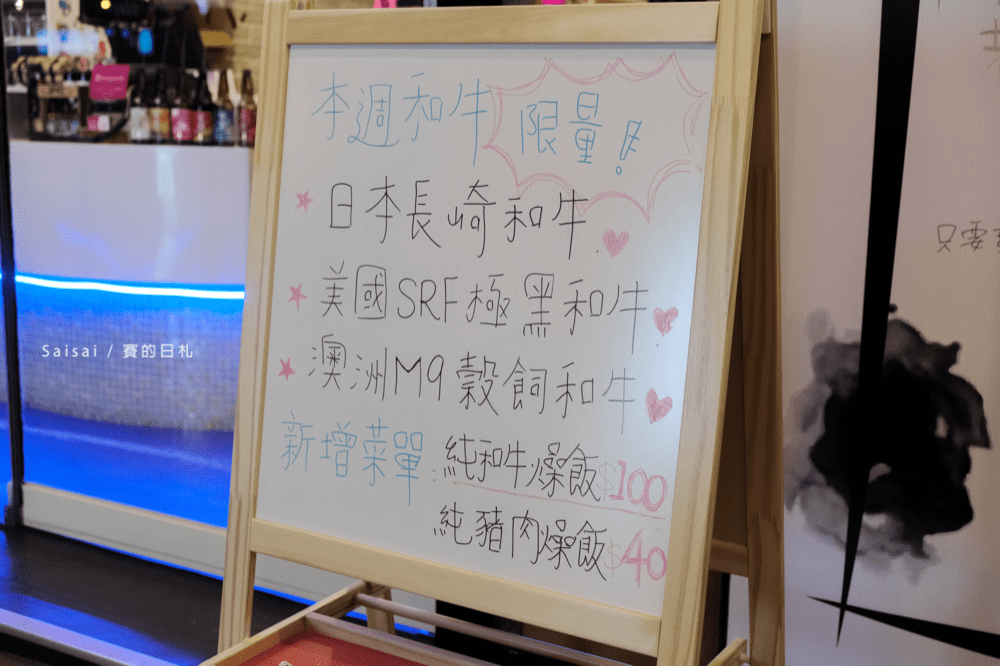 本週和牛 限量!
日本長崎和牛
美國SRF極黑和牛
澳洲M9穀飼和牛
新增菜單:純和牛燥飯$100
純豬肉燥飯$40
Saisai / 賽的日札
只要